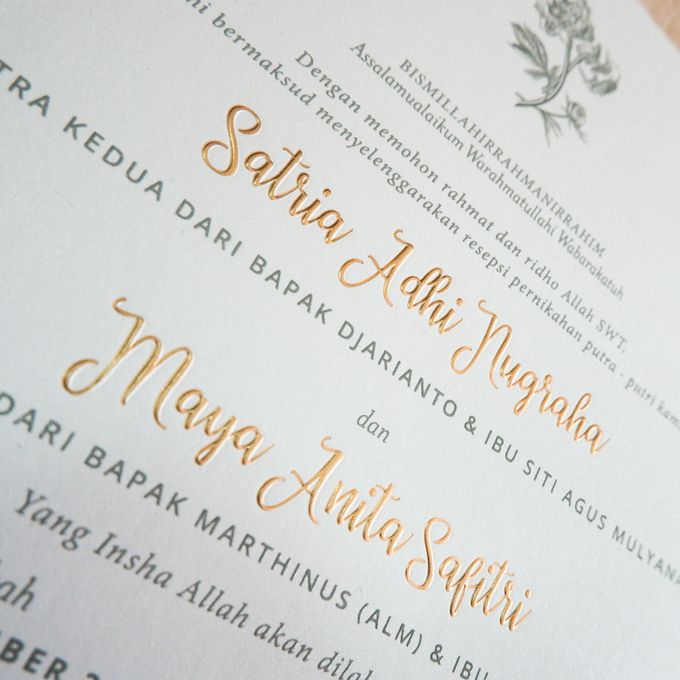 BISMILLAHIRRAHMANIRRAHIM
Assalamualaikum Warahmatullahi Wabarakatuh
Dengan memohon rahmat dan ridho Allah SWT,
bermaksud menyelenggarakan resepsi pernikahan putra - putri kami
Satria Adhi Nugraha
KEDUA DARI BAPAK DJARIANTO & IBU SITI AGUS MULYANA
dan
Maya Anita Safitri
DARI BAPAK MARTHINUS (ALM) & IBU
Yang Insha Allah akan